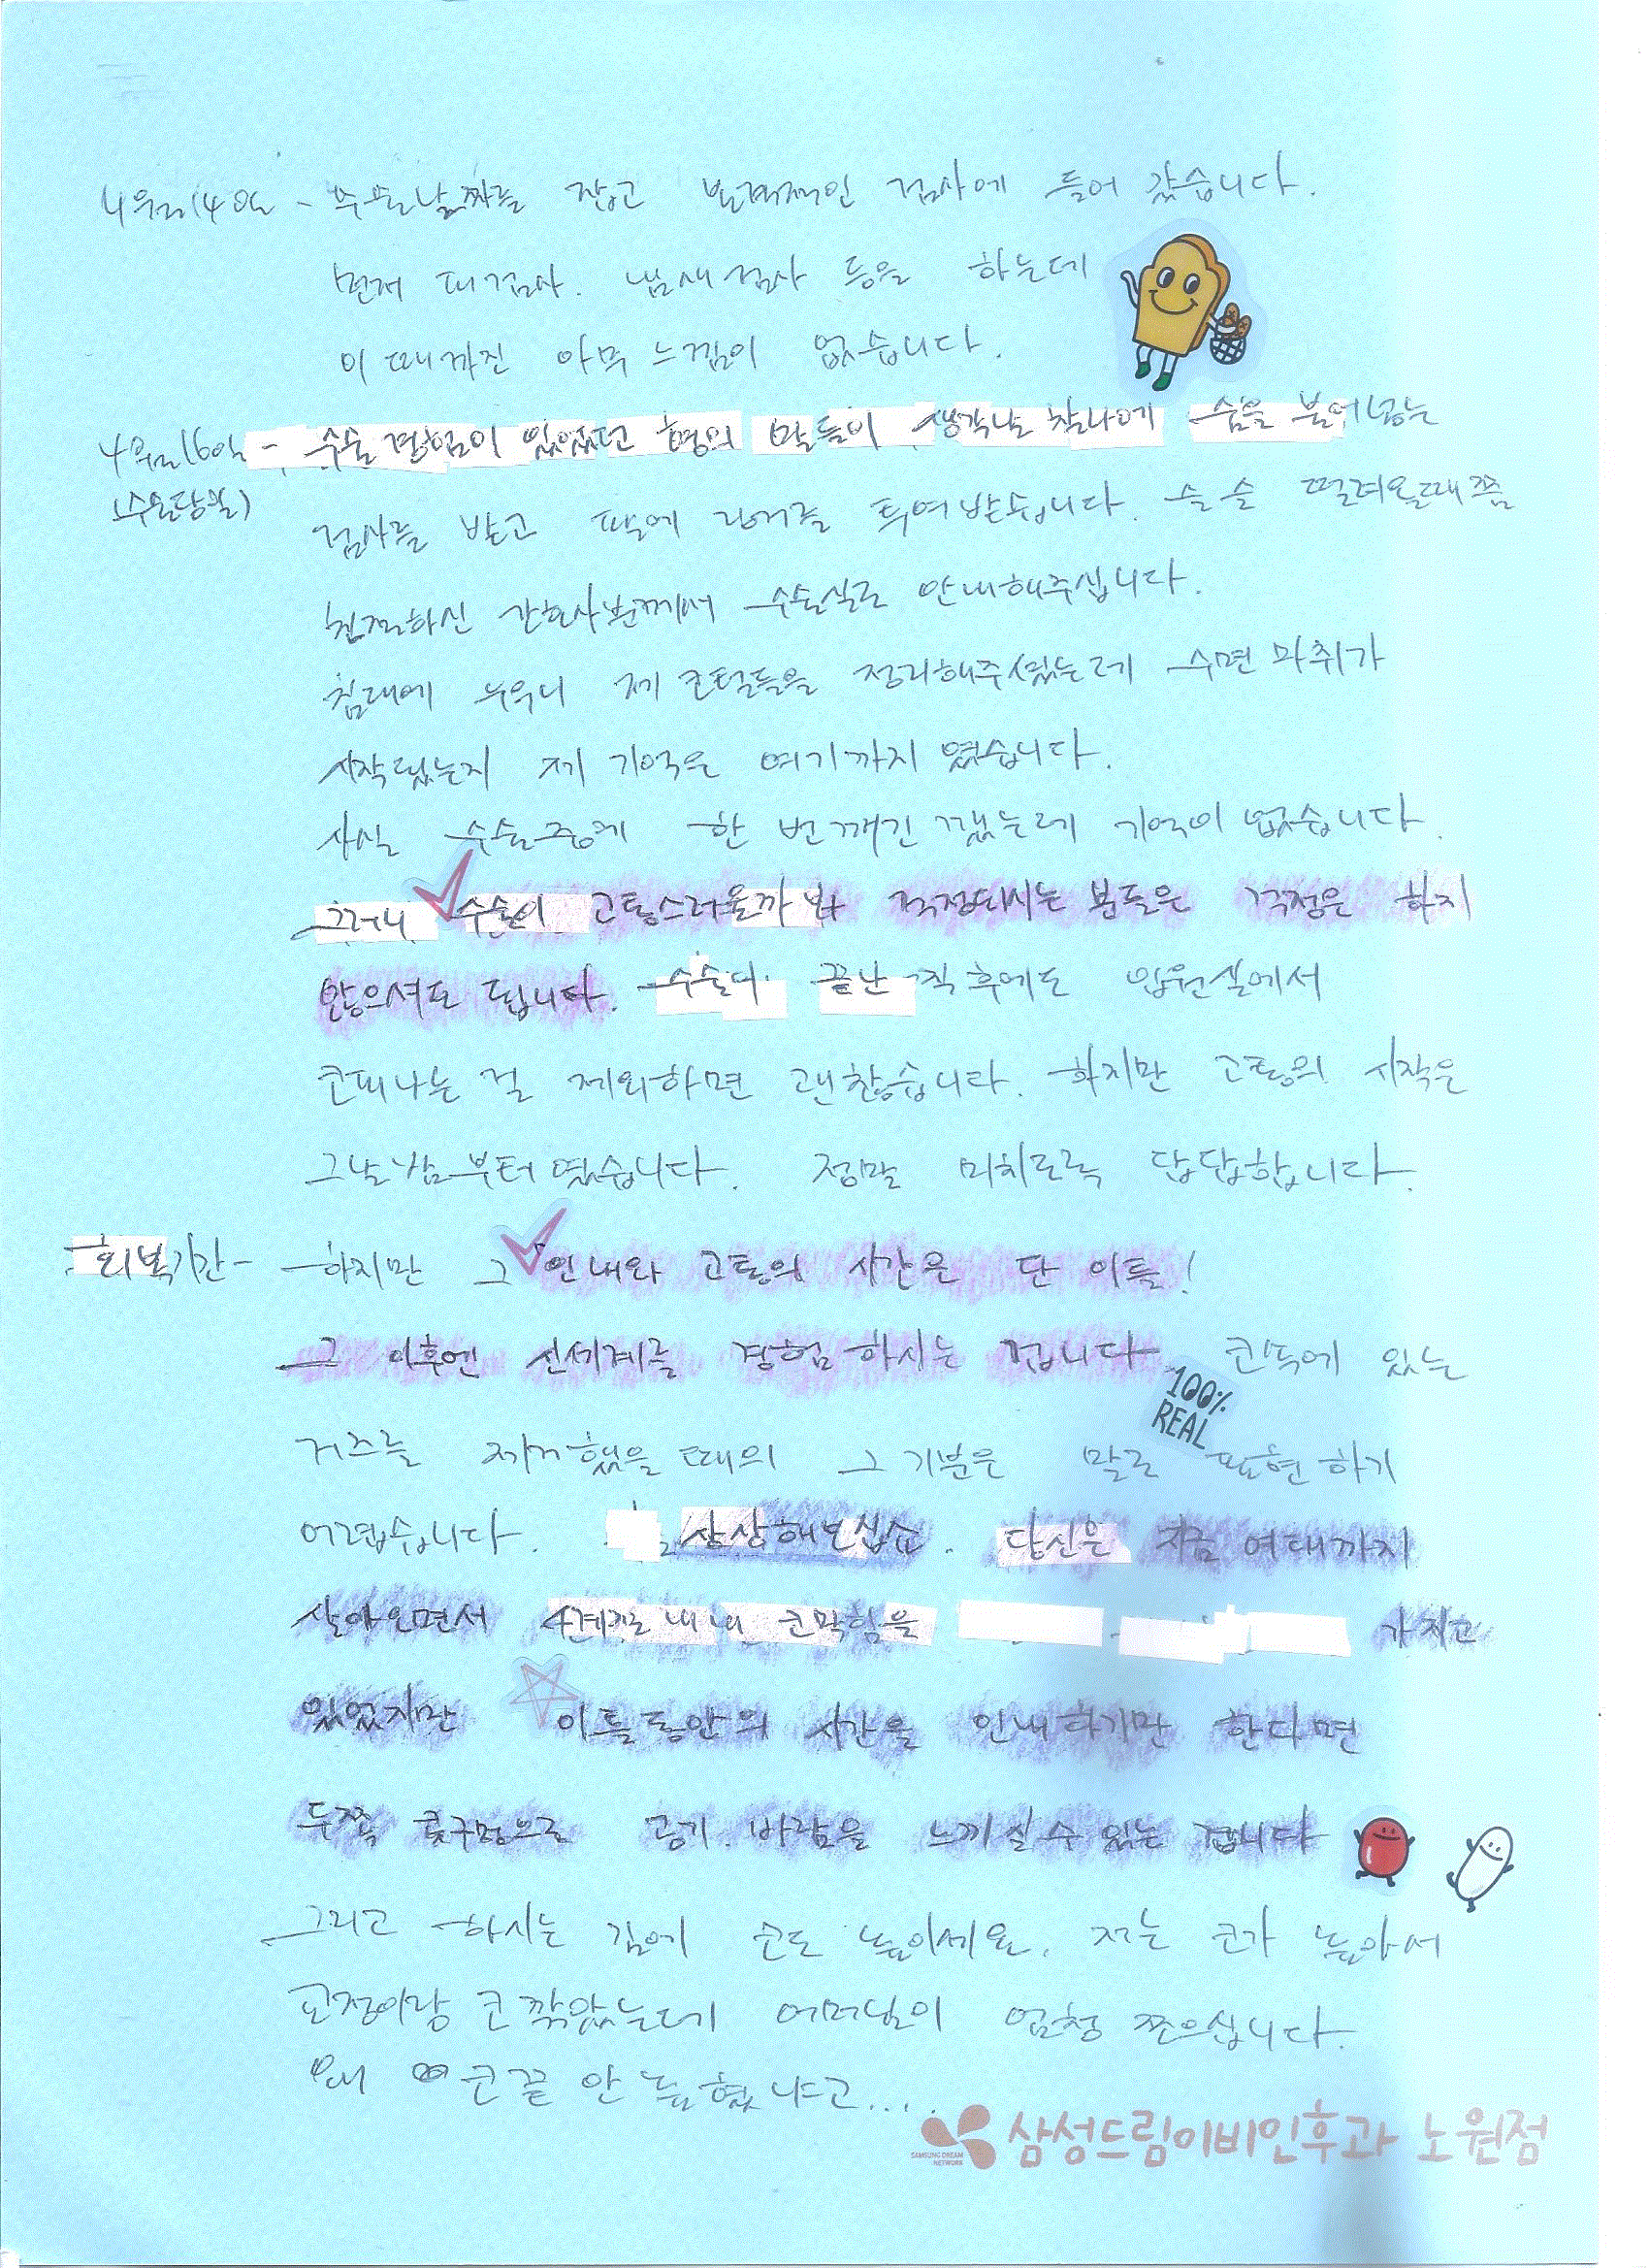 4월14일 - 수술날짜를 잡고 본격적인 검사에 들어 갔습니다.
먼저 피검사. 냄새검사 등을 하는데
이때까진 아무 느낌이 없습니다.
4월16일 - 수술 경험이 있었던 형의 말들이 생각날 찰나에 숨을 불어넣는
(수술당일) 검사를 받고 팔에 링거를 투여받습니다. 슬슬 떨려올때쯤
친절하신 간호사분께서 수술실로 안내해주십니다.
침대에 누우니 제 코털들을 정리해주셨는데 수면 마취가
시작됐는지 제 기억은 여기까지 였습니다.
사실 수술중에 한 번 깨긴 깼는데 기억이 없습니다.
그러니 수술이 고통스러울까 봐 걱정되시는 분들은 걱정은 하지
않으셔도 됩니다. 수술이 끝난 직후에도 입원실에서
코피나는 걸 제외하면 괜찮습니다. 하지만 고통의 시작은
그날밤부터 였습니다. 정말 미치도록 답답합니다.
회복기간 - 하지만 그 인내와 고통의 시간은 단 이틀!
그 이후엔 신세계를 경험 하시는 겁니다 코속에 있는
100%
REAL
거즈를 제거했을 때의 그 기분은 말로 표현하기
어렵습니다. 상상해보십쇼. 당신은 지금 여태까지
살아오면서 4계절 내내 코막힘을 가지고
있었지만 이틀동안의 시간을 인내하기만 한다면
두쪽 콧구멍으로 공기. 바람을 느끼실 수 있는 겁니다
그리고 하시는 김에 코도 높이세요. 저는 코가 높아서
교정이랑 코 깎았는데 어머님이 엄청 쪼으십니다.
왜 코끝 안 높혔냐고....
SAMSUNG DREAM
NETWORK
삼성드림이비인후과 노원점